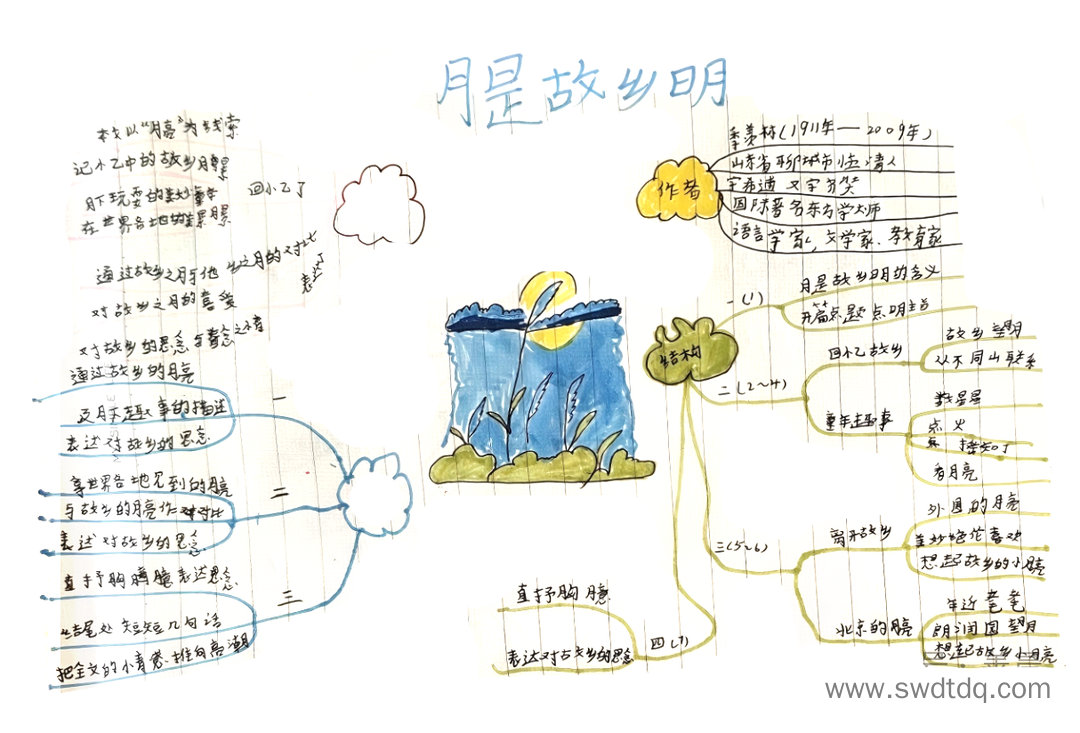 月是故乡明
本文以“月亮”为线索
回忆了
记忆中的故乡月景
月下玩耍的美妙童年
在世界各地的望月景
通过故乡之月与他乡之月的对比
表达了
对故乡之月的喜爱
对故乡的思念与眷念之情
一
通过故乡的月亮
及月下趣事的描述
表达对故乡的思念
二
拿世界各地见到的月亮
与故乡的月亮作对比
表达对故乡的思念
三
直抒胸臆表达思念
结尾处短短几句话
把全文的小情感推向高潮
作者
季羡林(1911年—2009年)
山东省聊城市临清人
字希逋又字齐奘
国际著名东方学大师
语言学家、文学家、教育家
结构
一(1)
月是故乡明的含义
开篇点题点明主旨
二(2~4)
回忆故乡
故乡望月
从不同山联系
童年趣事
数星星
点火
摇知了
看月亮
三(5~6)
离开故乡
外国的月亮
美妙绝伦喜欢
想起故乡的小月亮
北京的月亮
年近耄耋
朗润园望月
想起故乡小月亮
四(7)
直抒胸臆
表达对故乡的思念
www.swdtdq.com